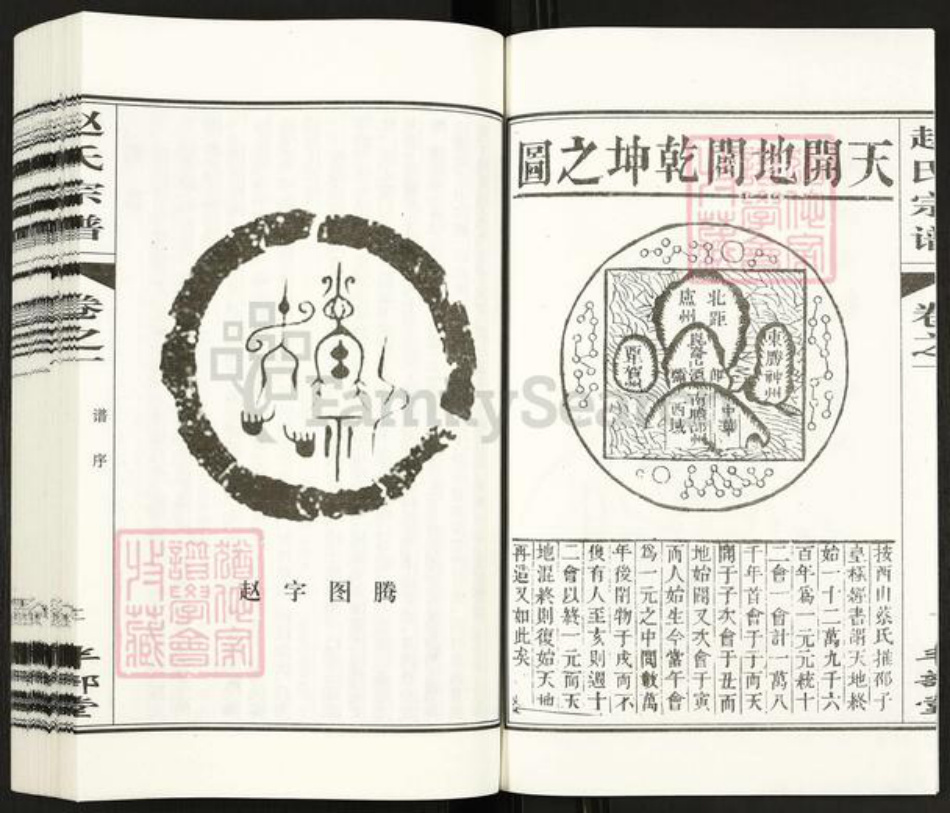 赵氏宗谱
卷之一
天開地闢乾坤之圖
北距
盧州
東勝神州
中華
西域
按西山蔡氏推邵子
皇極經書謂天地終
始一十二萬九千六
百年爲一元元統十
二會一會計一萬八
千年首會子于而天
開于子次會于丑而
地始闢又次會于寅
而人始生今當午會
爲一元之中閱數萬
年後閉物于戌而不
復有人至亥則週十
二會以終一元而天
地混終則復始天地
再造又如此矣
赵字图腾
赵氏宗谱
卷之一
谱序
半部堂
FamilySearch